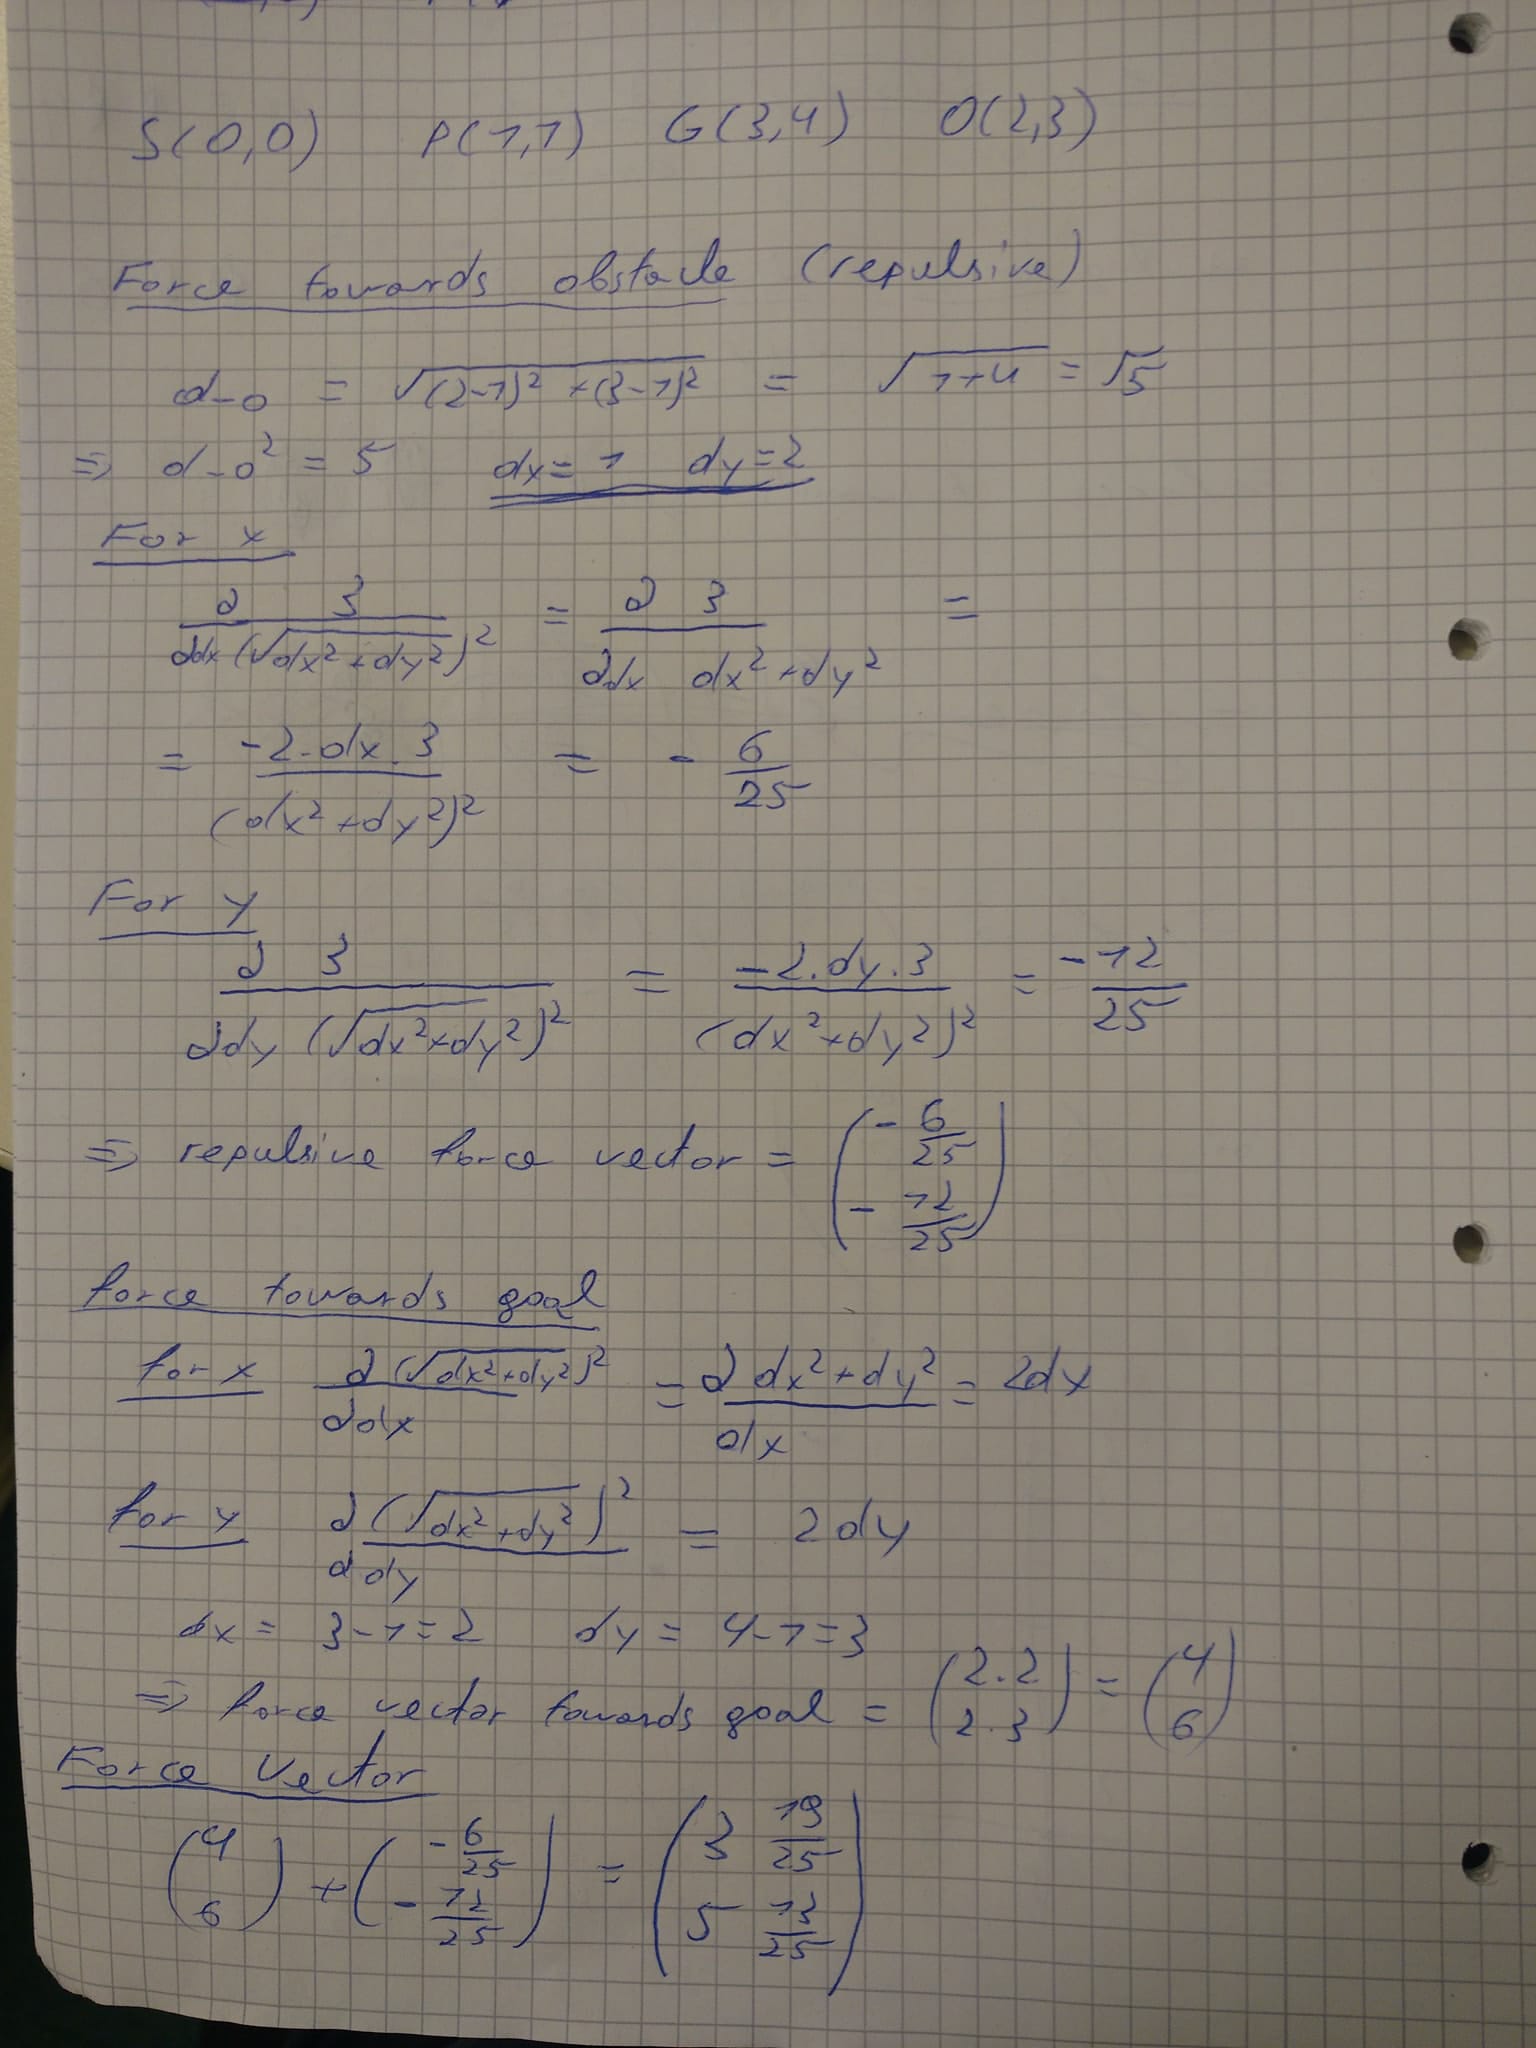 S(0,0) P(1,1) G(3,4) O(2,3)
Force towards obstacle (repulsive)
d_o = √((2-1)² + (3-1)²) = √(1+4) = √5
⇒ d_o² = 5 dx = 1 dy = 2
For x
∂ 3 / ∂dx (√(dx²+dy²))² = ∂ 3 / ∂dx dx²+dy² =
= -2·dx·3 / (dx²+dy²)² = - 6/25
For y
∂ 3 / ∂dy (√(dx²+dy²))² = -2·dy·3 / (dx²+dy²)² = -12/25
⇒ repulsive force vector = (- 6/25, - 12/25)
force towards goal
for x ∂ (√(dx²+dy²))² / ∂dx = ∂ dx²+dy² / dx = 2dx
for y ∂ (√(dx²+dy²))² / ∂dy = 2dy
dx = 3-1=2 dy = 4-1=3
⇒ force vector towards goal = (2·2, 2·3) = (4, 6)
Force Vector
(4, 6) + (- 6/25, - 12/25) = (3 19/25, 5 13/25)